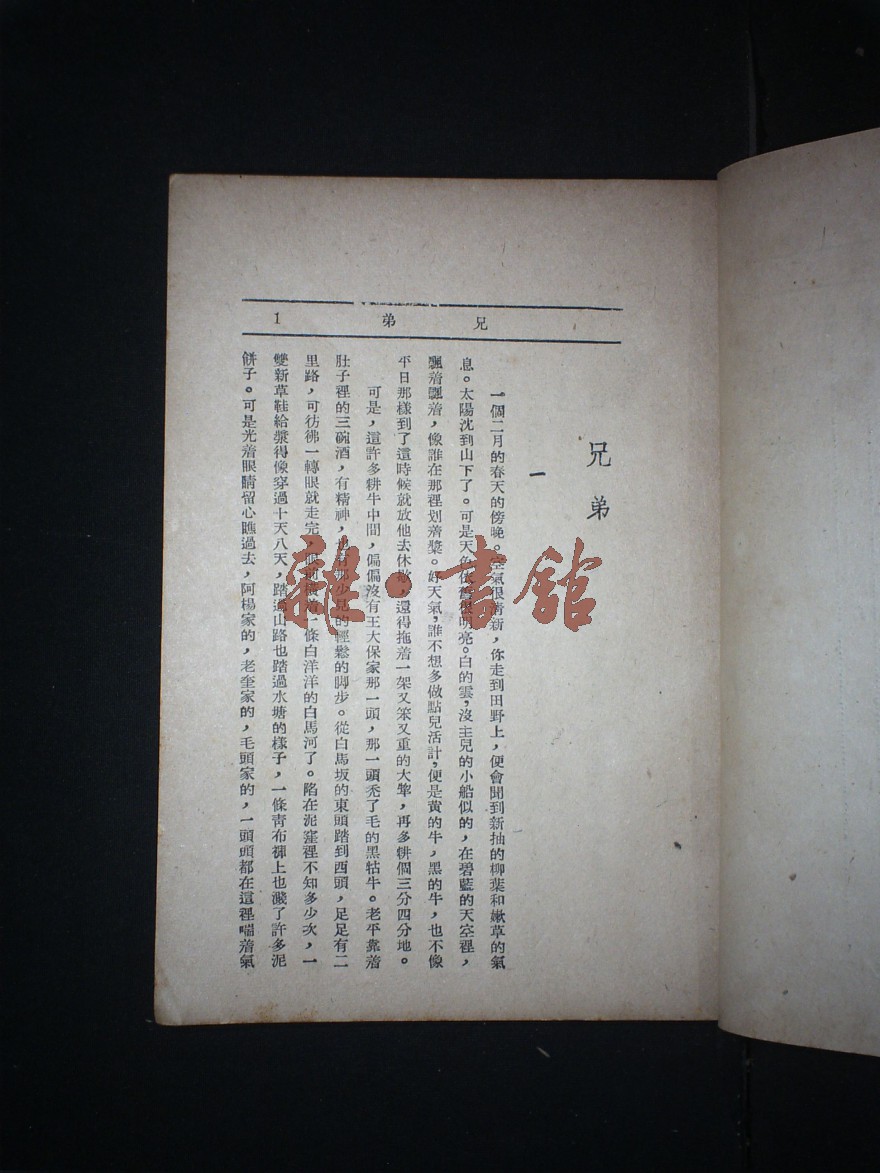 兄弟 1
兄弟
一
一個二月的春天的傍晚。空氣很清新，你走到田野上，便會聞到新抽的柳葉和嫩草的氣
息。太陽沈到山下了。可是天色依舊很明亮。白的雲，沒主兒的小船似的，在碧藍的天空裡，
飄着飄着，像誰在那裡划着槳。好天氣，誰不想多做點兒活計，便是黄的牛，黑的牛，也不像
平日那樣到了這時候就放他去休歇，還得拖着一架又笨又重的大犂，再多耕個三分四分地。
可是，這許多耕牛中間，偏偏沒有王大保家那一頭，那一頭禿了毛的黑牯牛。老平靠着
肚子裡的三碗酒，有精神，也有那少見的輕鬆的脚步。從白馬坂的東頭踏到西頭，足足有二
里路，可彷彿一轉眼就走完，眼前橫着一條白洋洋的白馬河了。陷在泥窪裡不知多少次，一
雙新草鞋給漿得像穿過十天八天，踏過山路也踏過水塘的樣子，一條青布褲上也濺了許多泥
餅子。可是光着眼睛留心瞧過去，阿楊家的，老奎家的，毛頭家的，一頭頭都在這裡喘着氣
雜·書館